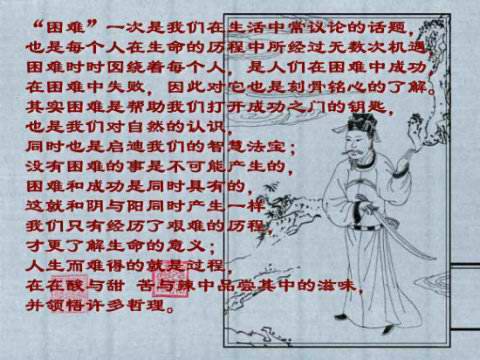 “困难”一次是我们在生活中常议论的话题，
也是每个人在生命的历程中所经过无数次机遇，
困难时时围绕着每个人，是人们在困难中成功，
在困难中失败，因此对它也是刻骨铭心的了解。
其实困难是帮助我们打开成功之门的钥匙，
也是我们对自然的认识，
同时也是启迪我们的智慧法宝；
没有困难的事是不可能产生的，
困难和成功是同时具有的，
这就和阴与阳同时产生一样，
我们只有经历了艰难的历程，
才更了解生命的意义；
人生而难得的就是过程，
在在酸与甜 苦与辣中品尝其中的滋味，
并领悟许多哲理。